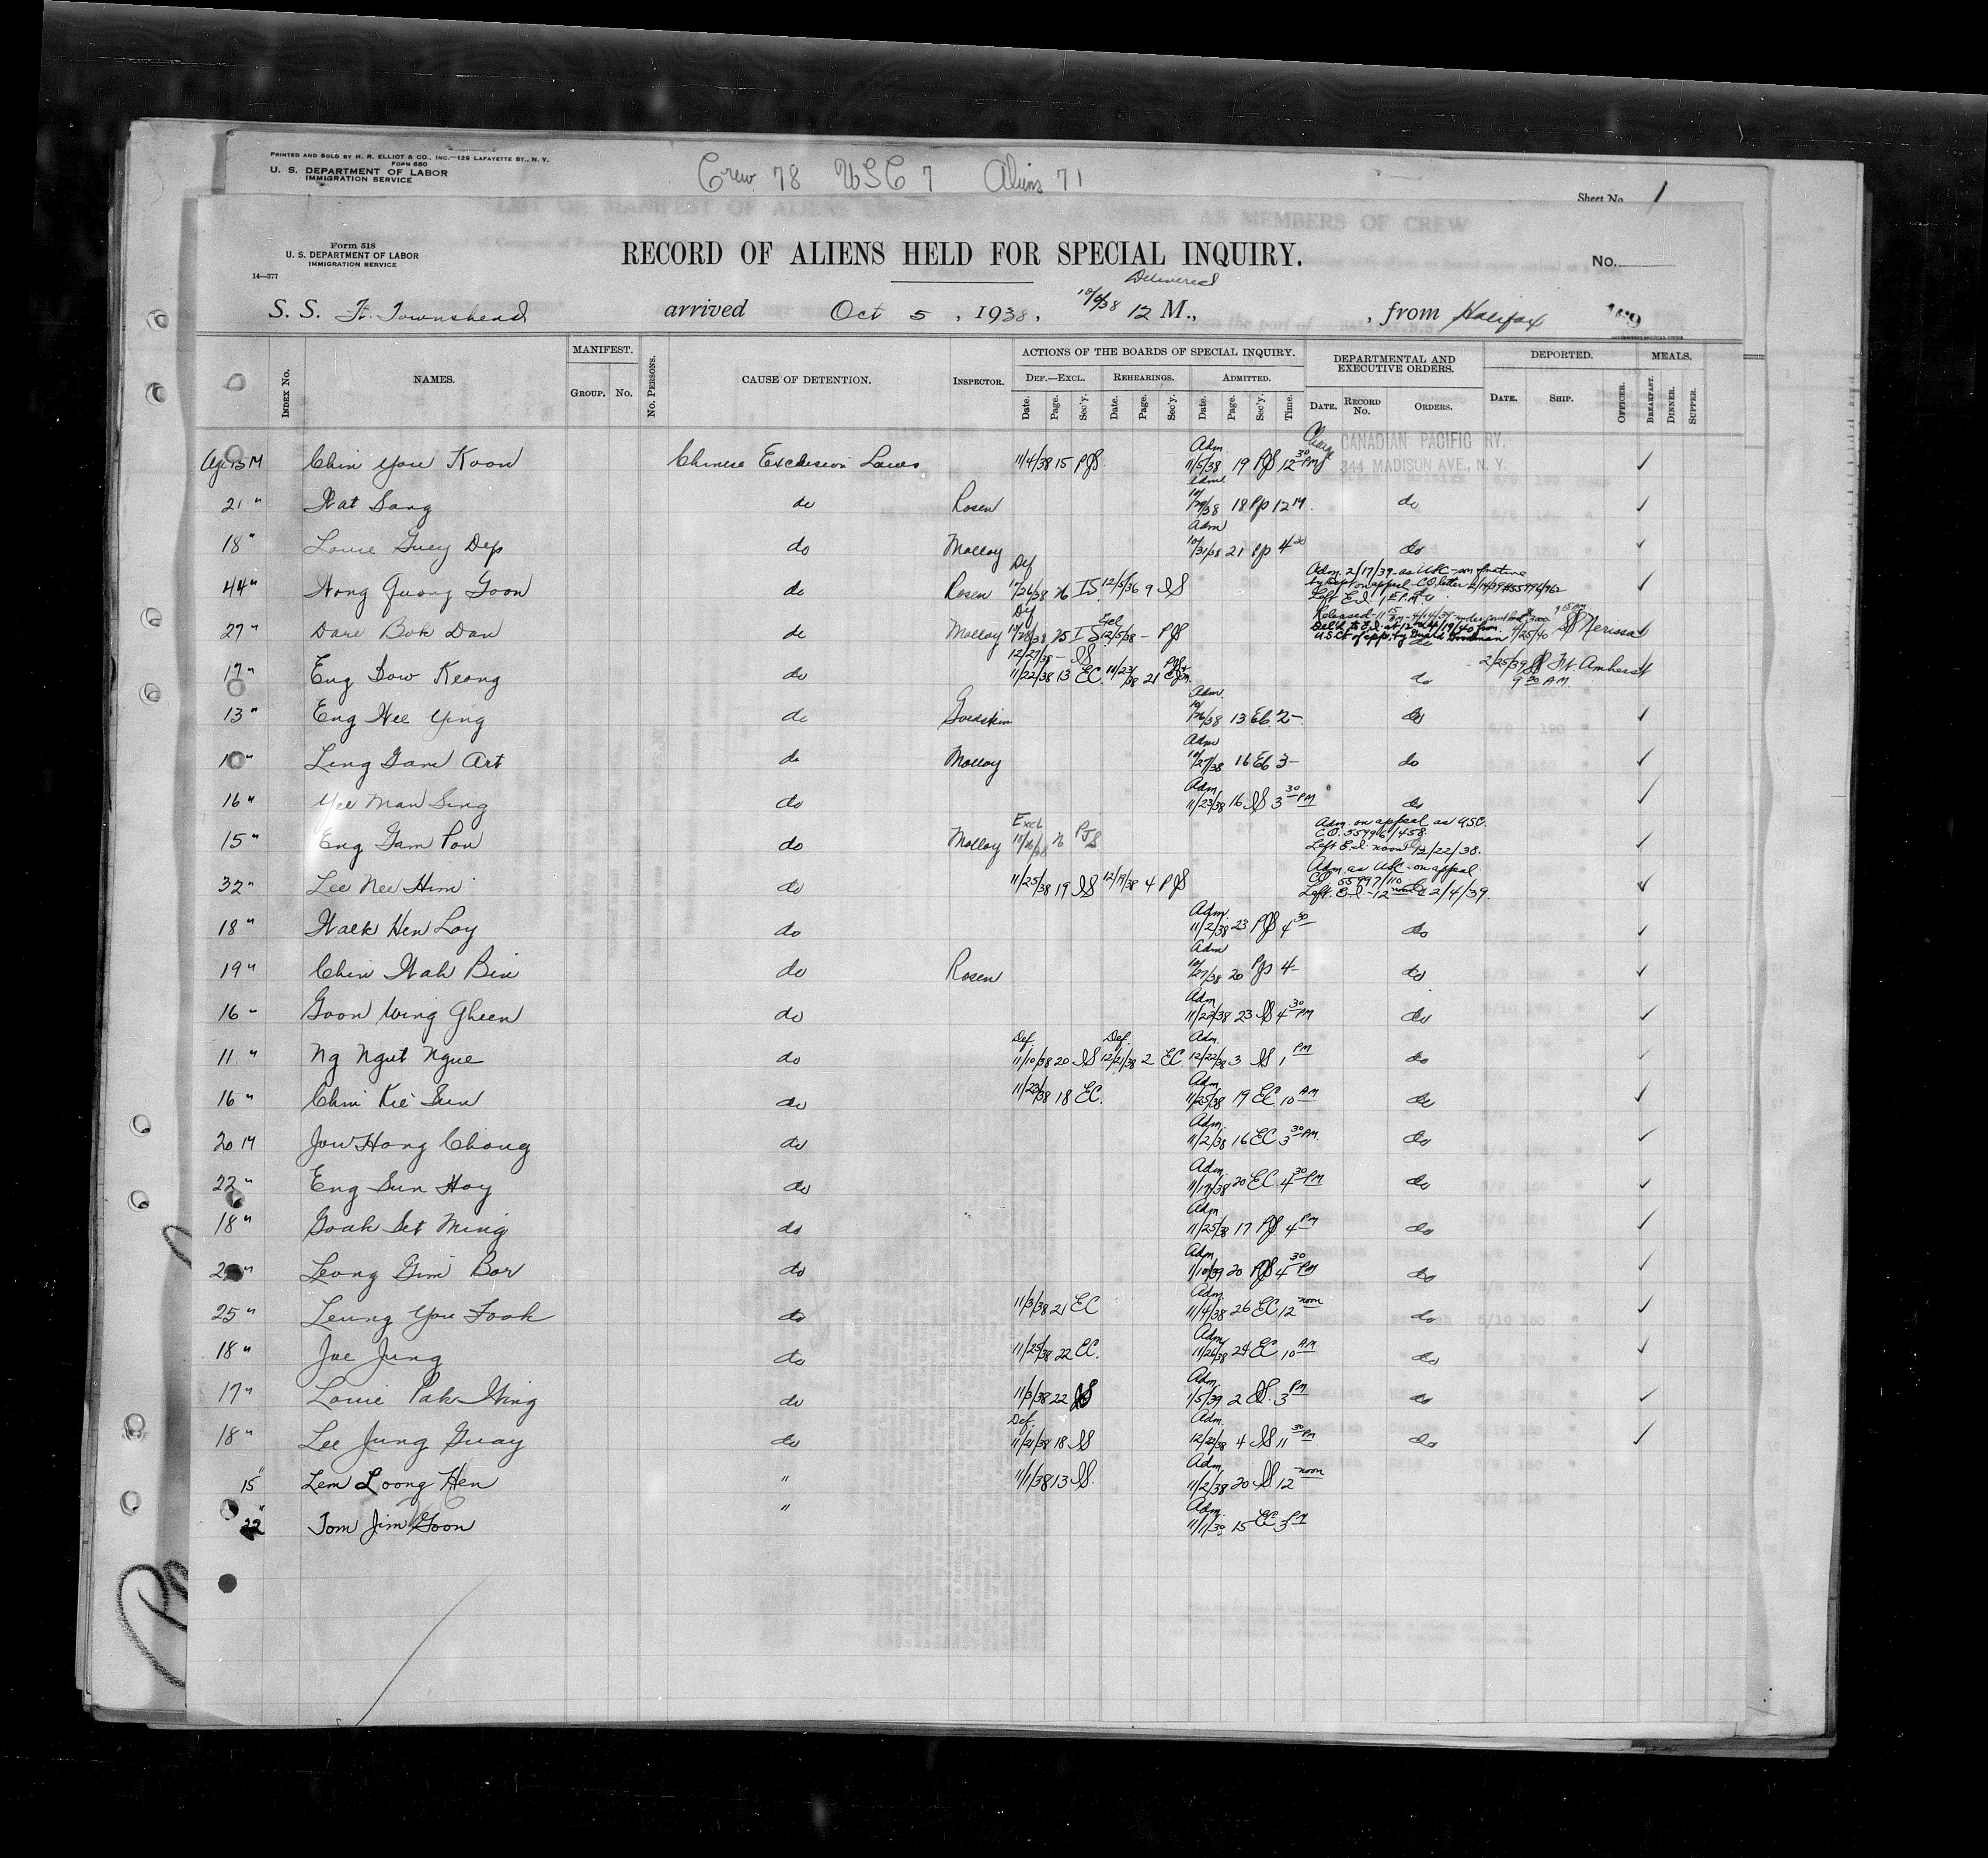 PRINTED AND SOLD BY H. R. ELLIOT & CO., INC.—129 LAFAYETTE ST., N. Y.
FORM 680
U. S. DEPARTMENT OF LABOR
IMMIGRATION SERVICE
Crew 78 USC 7 Aliens 71
Sheet No. 1
Form 518
U. S. DEPARTMENT OF LABOR
IMMIGRATION SERVICE
14—377
RECORD OF ALIENS HELD FOR SPECIAL INQUIRY.
No.
Delivered
S. S. Ft. Townshend arrived Oct 5, 1938, 10/6/38 12 M., , from Halifax
INDEX No. NAMES. MANIFEST. GROUP. No. No. PERSONS. CAUSE OF DETENTION. INSPECTOR. ACTIONS OF THE BOARDS OF SPECIAL INQUIRY. DEPARTMENTAL AND EXECUTIVE ORDERS. DEPORTED. MEALS.
DEF.—EXCL. REHEARINGS. ADMITTED.
Date. Page. Sec'y. Date. Page. Sec'y. Date. Page. Sec'y. Time. DATE. RECORD No. ORDERS. DATE. SHIP. OFFICER. BREAKFAST. DINNER. SUPPER.
CANADIAN PACIFIC RY.
344 MADISON AVE., N. Y.
Chin You Koon Chinese Exclusion Laws 11/4/38 15 PJS Adm. 11/5/38 19 PJS 12 30 PM
21 " Wat Sang do Rosen 10/29/38 18 12 M. do
18 " Louie Guey Dep do Molloy Adm 10/31/38 21 4 20 do
44 " Wong Quong Goon do Rosen Def 10/26/38 26 IS 12/5/38 9 IS
Adm. 2/17/39 as USC
Left E.I. 1 P.M.
27 " Dare Bok Dan do Molloy Def 10/28/38 25 IS 12/5/38 — PJS
4/25/40 SS Nerissa
12/27/38 — IS
17 " Eng Dow Keong do 11/22/38 13 EC 11/23/38 21 do 2/25/39 SS Ft. Amherst
9 30 A.M.
13 " Eng Wee Ying do Adm. 10/26/38 13 Eb. 2— do
Ling Gam Art do Molloy Adm 10/27/38 16 Eb 3— do
16 " Yee Man Sing do Adm. 11/23/38 16 IS 3 30 PM do
15 " Eng Gam Pon do Molloy Excl PJS
Adm. on appeal as USC.
C.O. 55996/458
Left E.I. noon 12/22/38.
32 " Lee Nee Him do 11/25/38 19 IS 12/19/38 4 PJS
Adm as USC on appeal
CO 55997/110
Left E.I. 12 noon 2/4/39.
18 " Wack Hen Loy do Adm. 11/2/38 23 PJS 4 30 do
19 " Chin Wah Bin do Rosen Adm 10/27/38 20 PJS 4— do
16 " Goon Wing Gheen do Adm 11/23/38 23 IS 4 30 PM do
11 " Ng Ngut Ngue do Def. 11/10/38 20 IS Def. 12/21/38 2 EC Adm. 12/22/38 3 IS 1 PM do
16 " Chin Kie Sun do 11/23/38 18 EC. Adm. 11/25/38 19 EC 10 AM do
20 M Jow Hong Chong do Adm. 11/2/38 16 EC 3 30 PM. do
22 " Eng Sun Hoy do Adm. 11/17/38 20 EC 4 30 PM do
18 " Goak Set Ming do Adm 11/25/38 17 PJS 4 PM do
Leong Gim Bor do Adm. 1/10/39 20 PJS 4 30 PM do
25 " Leung You Fook do 11/3/38 21 EC Adm. 11/4/38 26 EC 12 noon do
18 " Joe Jung do 11/25/38 22 EC. Adm. 11/26/38 24 EC 10 AM do
17 " Louie Pak Wing do 11/3/38 22 Adm. 1/5/39 2 IS. 3 PM do
18 " Lee Jung Guay do Def. 11/21/38 18 IS Adm. 12/22/38 4 IS 11 30 do
15 " Lem Loong Hen " 11/1/38 13 IS. Adm. 11/2/38 20 IS. 12 noon
22 " Tom Jim Goon " Adm. 15 EC 3 PM